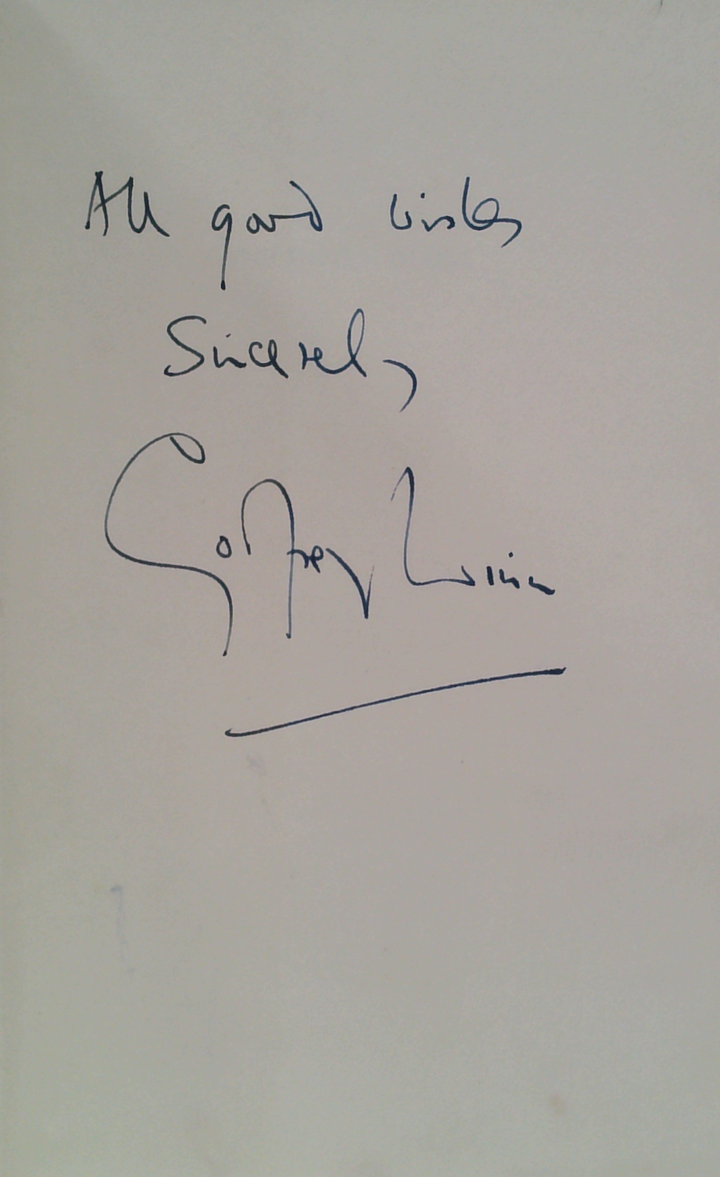 All good wishes
Sincerely
Godfrey Winn